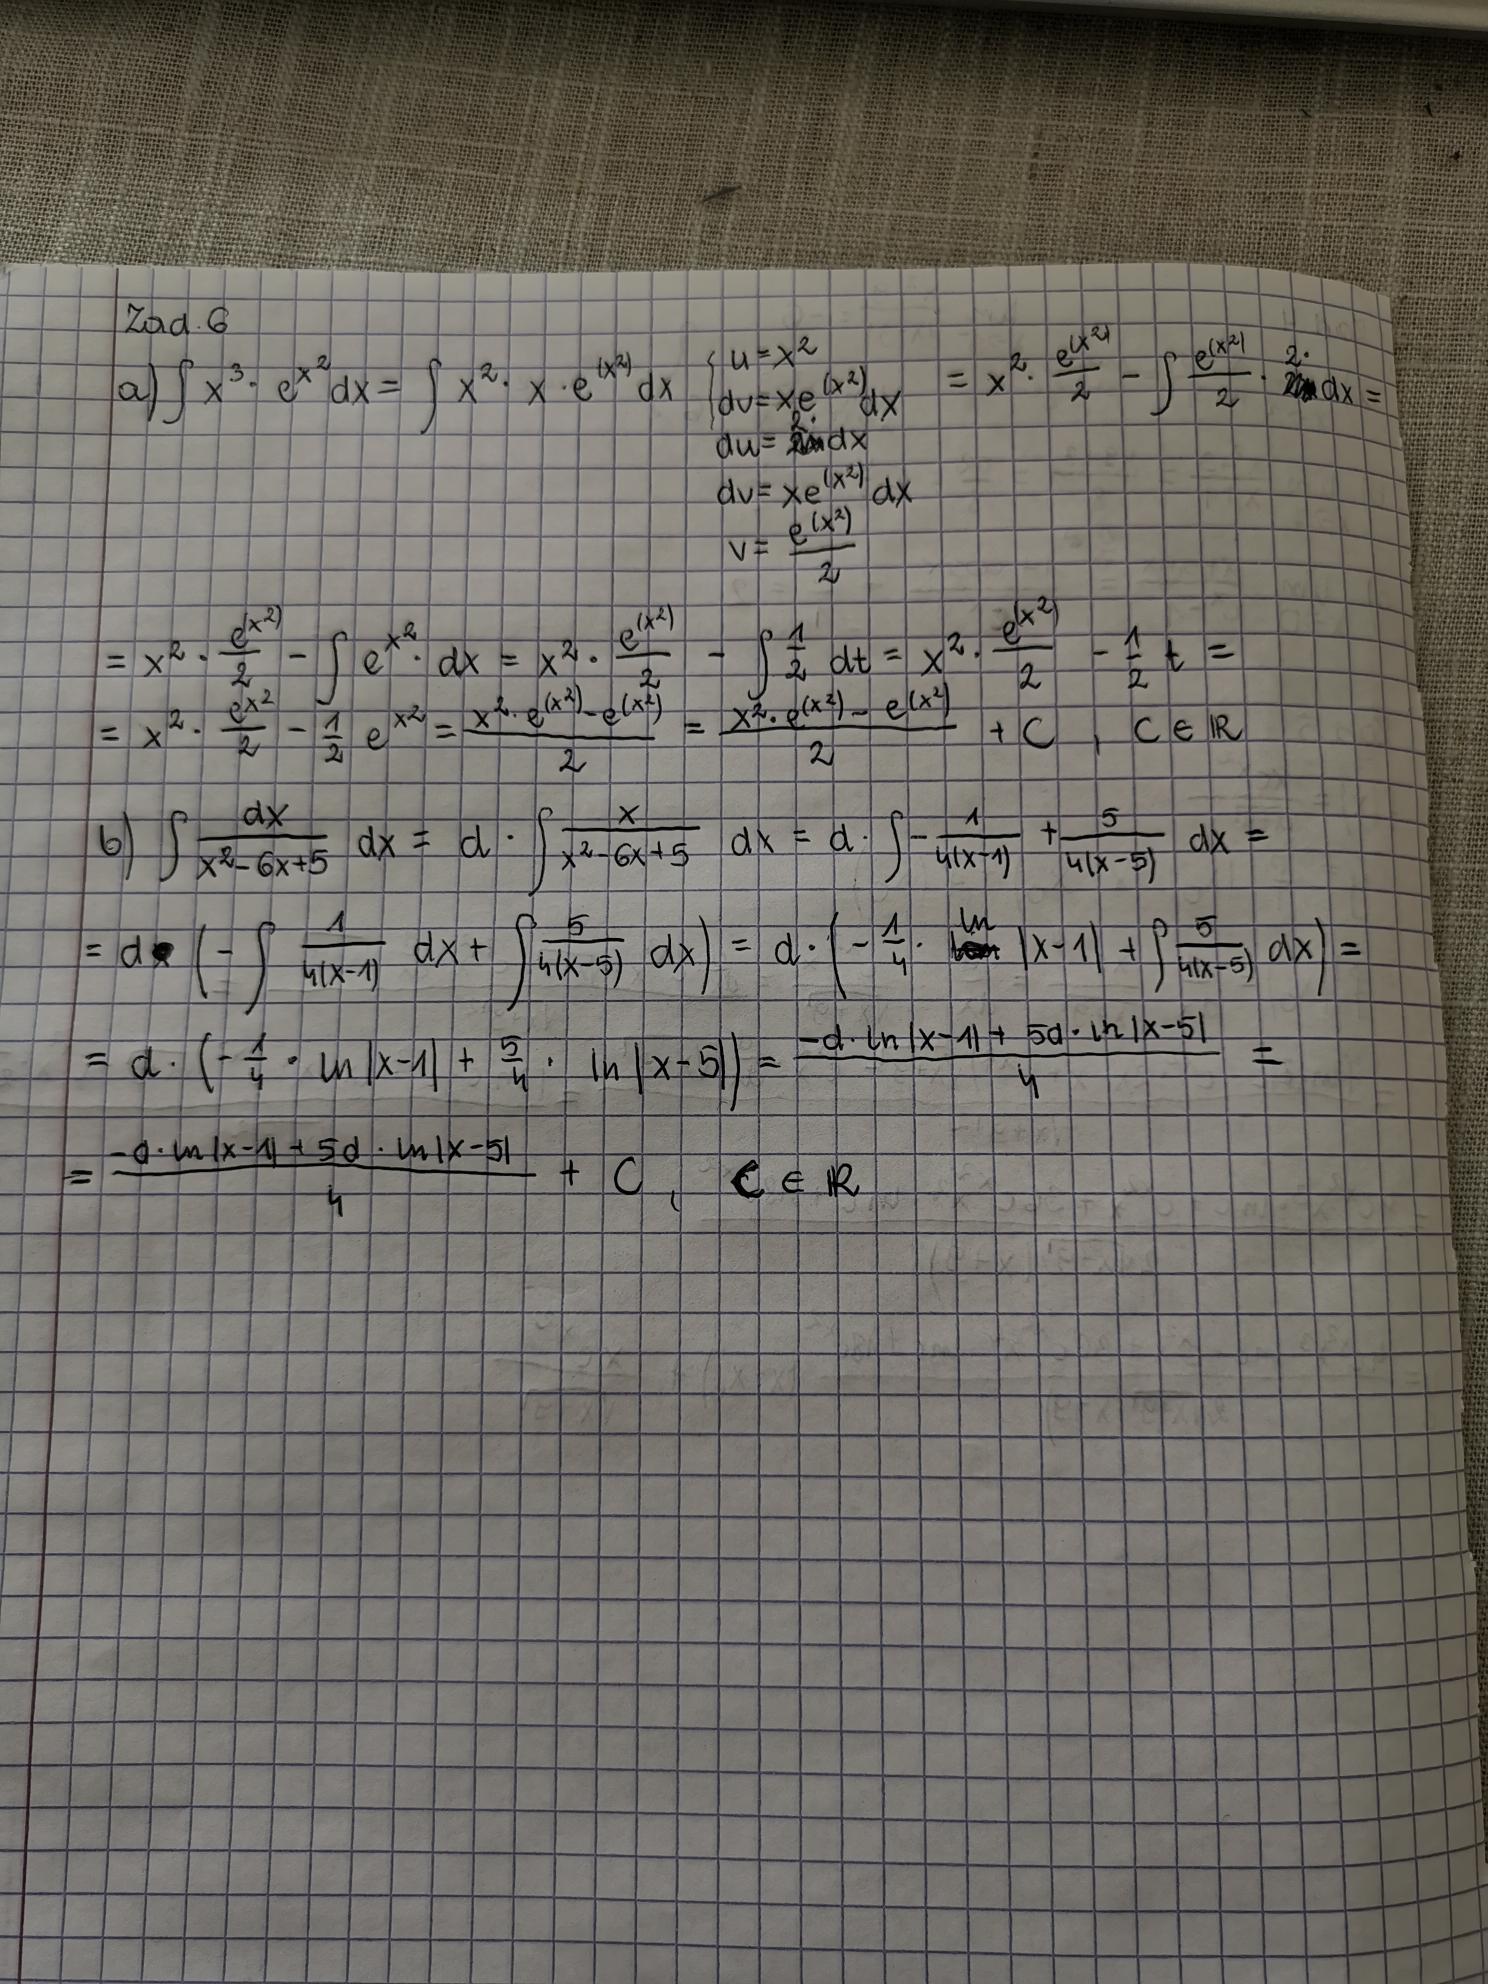 Zad. 6
a) ∫ x³ · e^x² dx = ∫ x² · x · e^(x²) dx { u = x² = x² · e^(x²)/2 − ∫ e^(x²)/2 · 2· dx =
dv = xe^(x²) dx
du = 2· dx
dv = xe^(x²) dx
v = e^(x²)/2
= x² · e^(x²)/2 − ∫ e^x² · dx = x² · e^(x²)/2 − ∫ 1/2 dt = x² · e^(x²)/2 − 1/2 t =
= x² · e^x²/2 − 1/2 e^x² = (x² · e^(x²) − e^(x²))/2 = (x² · e^(x²) − e^(x²))/2 + C , C ∈ ℝ
b) ∫ dx/(x² − 6x + 5) dx = d · ∫ x/(x² − 6x + 5) dx = d · ∫ − 1/(4(x−1)) + 5/(4(x−5)) dx =
= d · (− ∫ 1/(4(x−1)) dx + ∫ 5/(4(x−5)) dx) = d · (− 1/4 · ln |x−1| + ∫ 5/(4(x−5)) dx) =
= d · (− 1/4 · ln |x−1| + 5/4 · ln |x−5|) = (−d · ln |x−1| + 5d · ln |x−5|)/4 =
= (−d · ln |x−1| + 5d · ln |x−5|)/4 + C , C ∈ ℝ